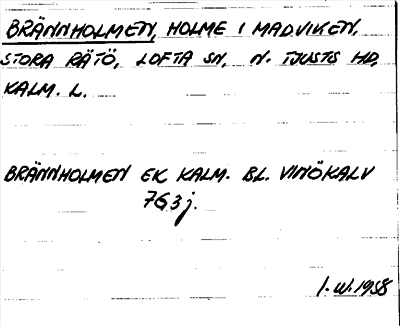 BRÄNNHOLMEN, HOLME I MADVIKEN,
STORA RÄTÖ, LOFTA SN, N. TJUSTS HD,
KALM. L.
BRÄNNHOLMEN EK KALM. BL. VINÖKALV
763j.
I.W.1958